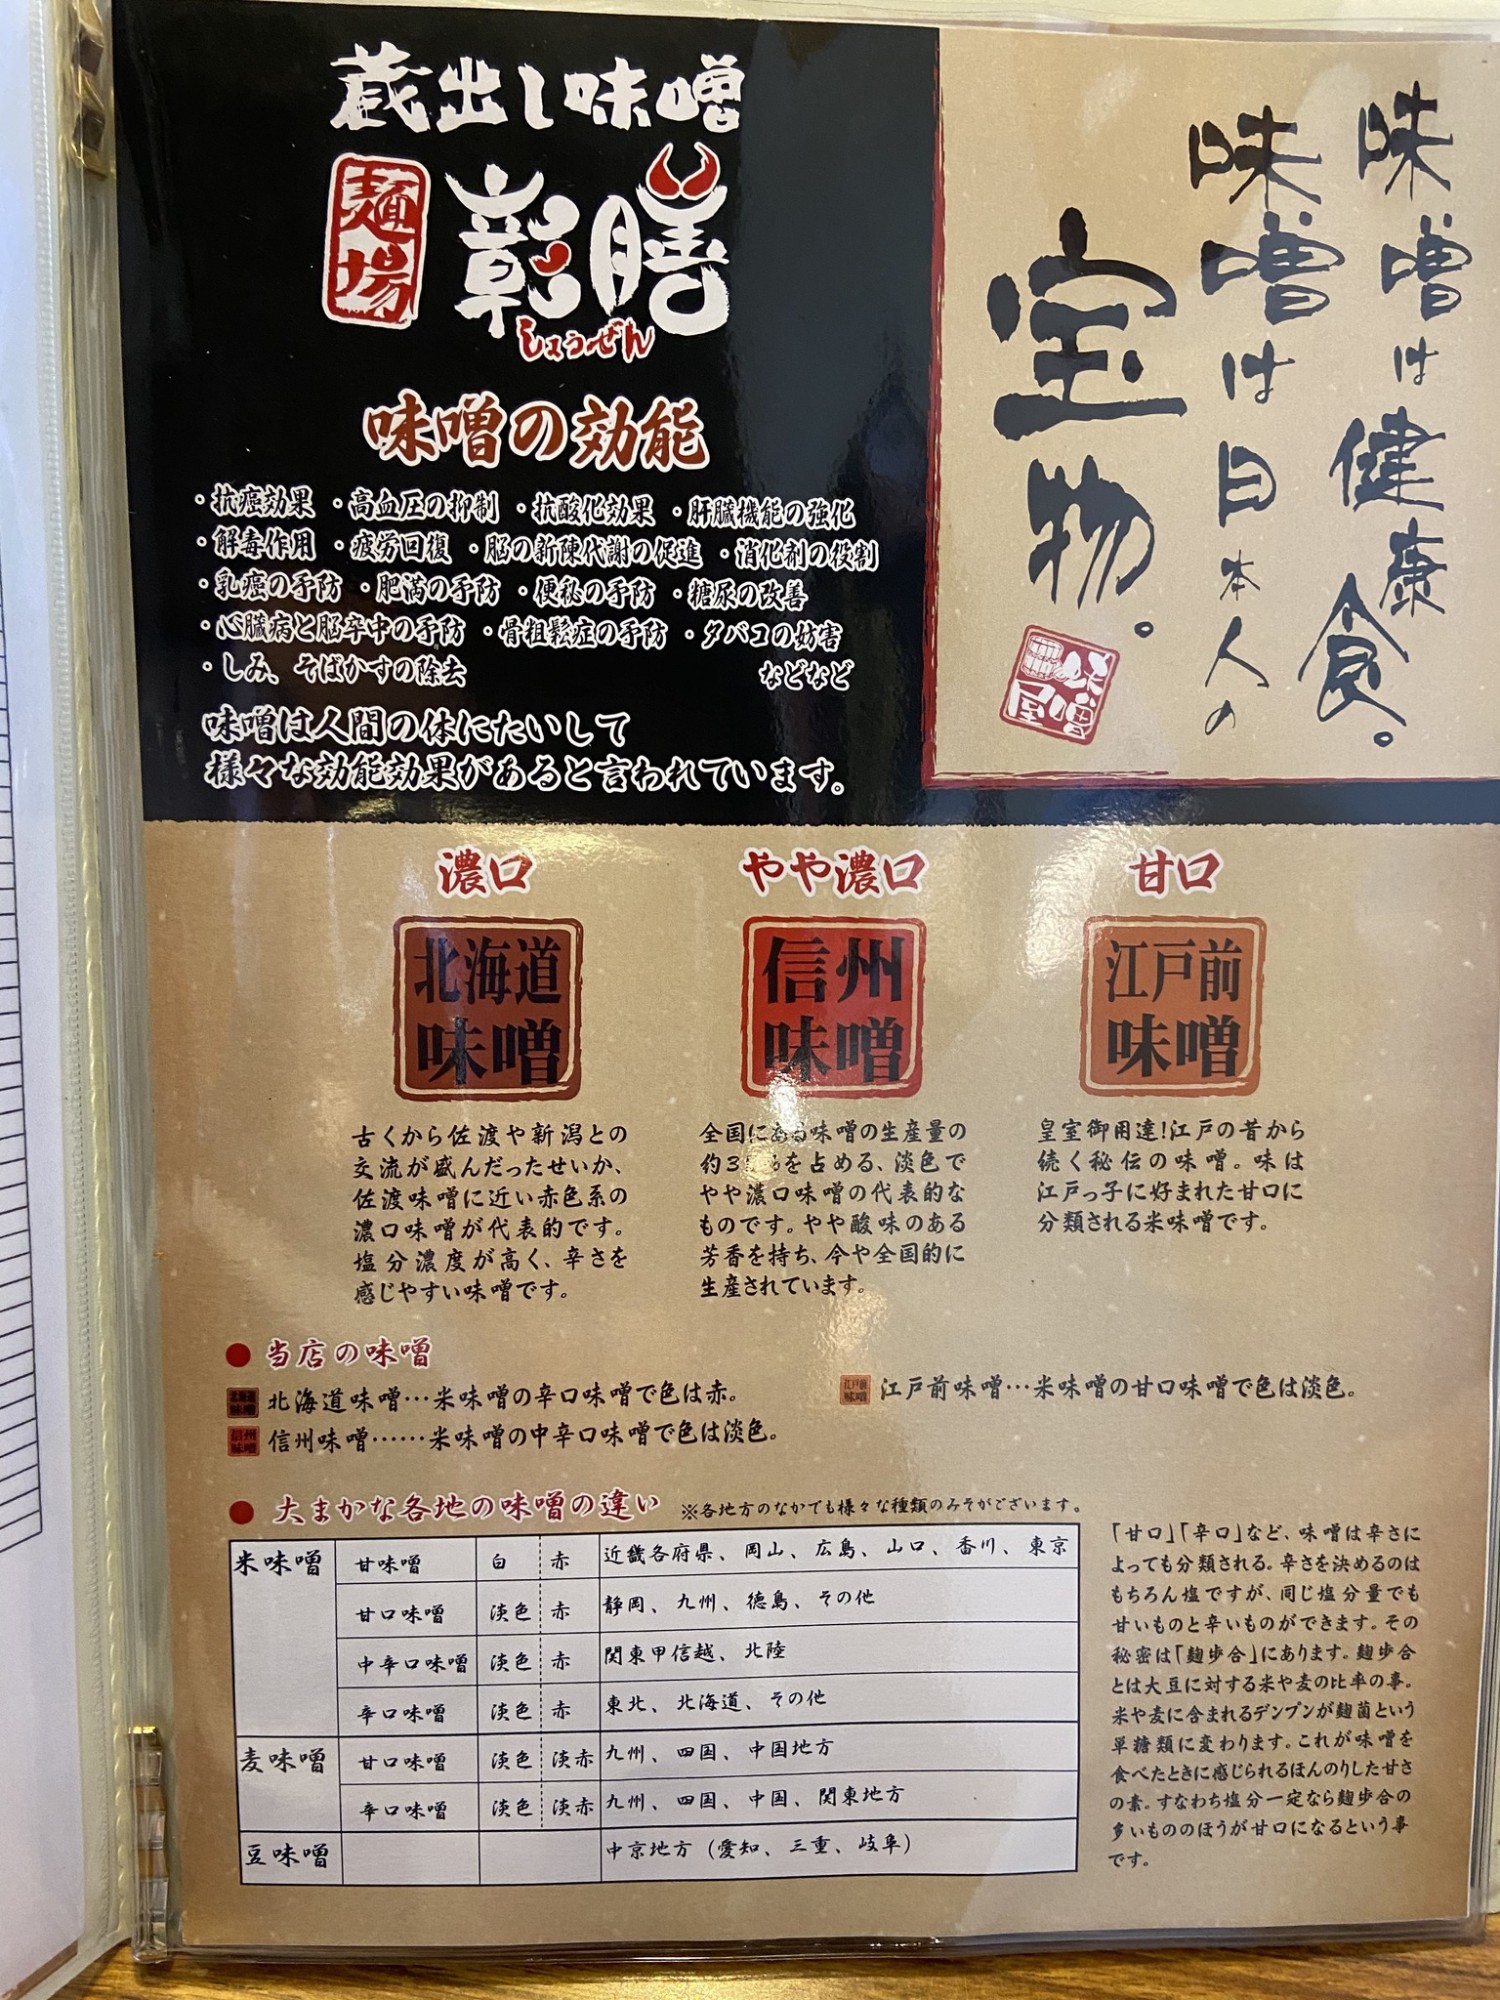 蔵出し味噌
麺場
彰膳
しょうぜん
味噌の効能
・抗癌効果 ・高血圧の抑制 ・抗酸化効果 ・肝臓機能の強化
・解毒作用 ・疲労回復 ・脳の新陳代謝の促進 ・消化剤の役割
・乳癌の予防 ・肥満の予防 ・便秘の予防 ・糖尿の改善
・心臓病と脳卒中の予防 ・骨粗鬆症の予防 ・タバコの妨害
・しみ、そばかすの除去 などなど
味噌は人間の体にたいして
様々な効能効果があると言われています。
味噌は健康食。
味噌は日本人の
宝物。
味噌屋
濃口
北海道
味噌
古くから佐渡や新潟との
交流が盛んだったせいか、
佐渡味噌に近い赤色系の
濃口味噌が代表的です。
塩分濃度が高く、辛さを
感じやすい味噌です。
やや濃口
信州
味噌
全国にある味噌の生産量の
約3を占める、淡色で
やや濃口味噌の代表的な
ものです。やや酸味のある
芳香を持ち、今や全国的に
生産されています。
甘口
江戸前
味噌
皇室御用達!江戸の昔から
続く秘伝の味噌。味は
江戸っ子に好まれた甘口に
分類される米味噌です。
●当店の味噌
北海道味噌 北海道味噌…米味噌の辛口味噌で色は赤。
江戸前味噌 江戸前味噌…米味噌の甘口味噌で色は淡色。
信州味噌 信州味噌……米味噌の中辛口味噌で色は淡色。
●大まかな各地の味噌の違い ※各地方のなかでも様々な種類のみそがございます。
米味噌 甘味噌 白 赤 近畿各府県、岡山、広島、山口、香川、東京
甘口味噌 淡色 赤 静岡、九州、徳島、その他
中辛口味噌 淡色 赤 関東甲信越、北陸
辛口味噌 淡色 赤 東北、北海道、その他
麦味噌 甘口味噌 淡色 淡赤 九州、四国、中国地方
辛口味噌 淡色 淡赤 九州、四国、中国、関東地方
豆味噌 中京地方（愛知、三重、岐阜）
「甘口」「辛口」など、味噌は辛さに
よっても分類される。辛さを決めるのは
もちろん塩ですが、同じ塩分量でも
甘いものと辛いものができます。その
秘密は「麹歩合」にあります。麹歩合
とは大豆に対する米や麦の比率の事。
米や麦に含まれるデンプンが麹菌という
単糖類に変わります。これが味噌を
食べたときに感じられるほんのりした甘さ
の素。すなわち塩分一定なら麹歩合の
多いもののほうが甘口になるという事
です。